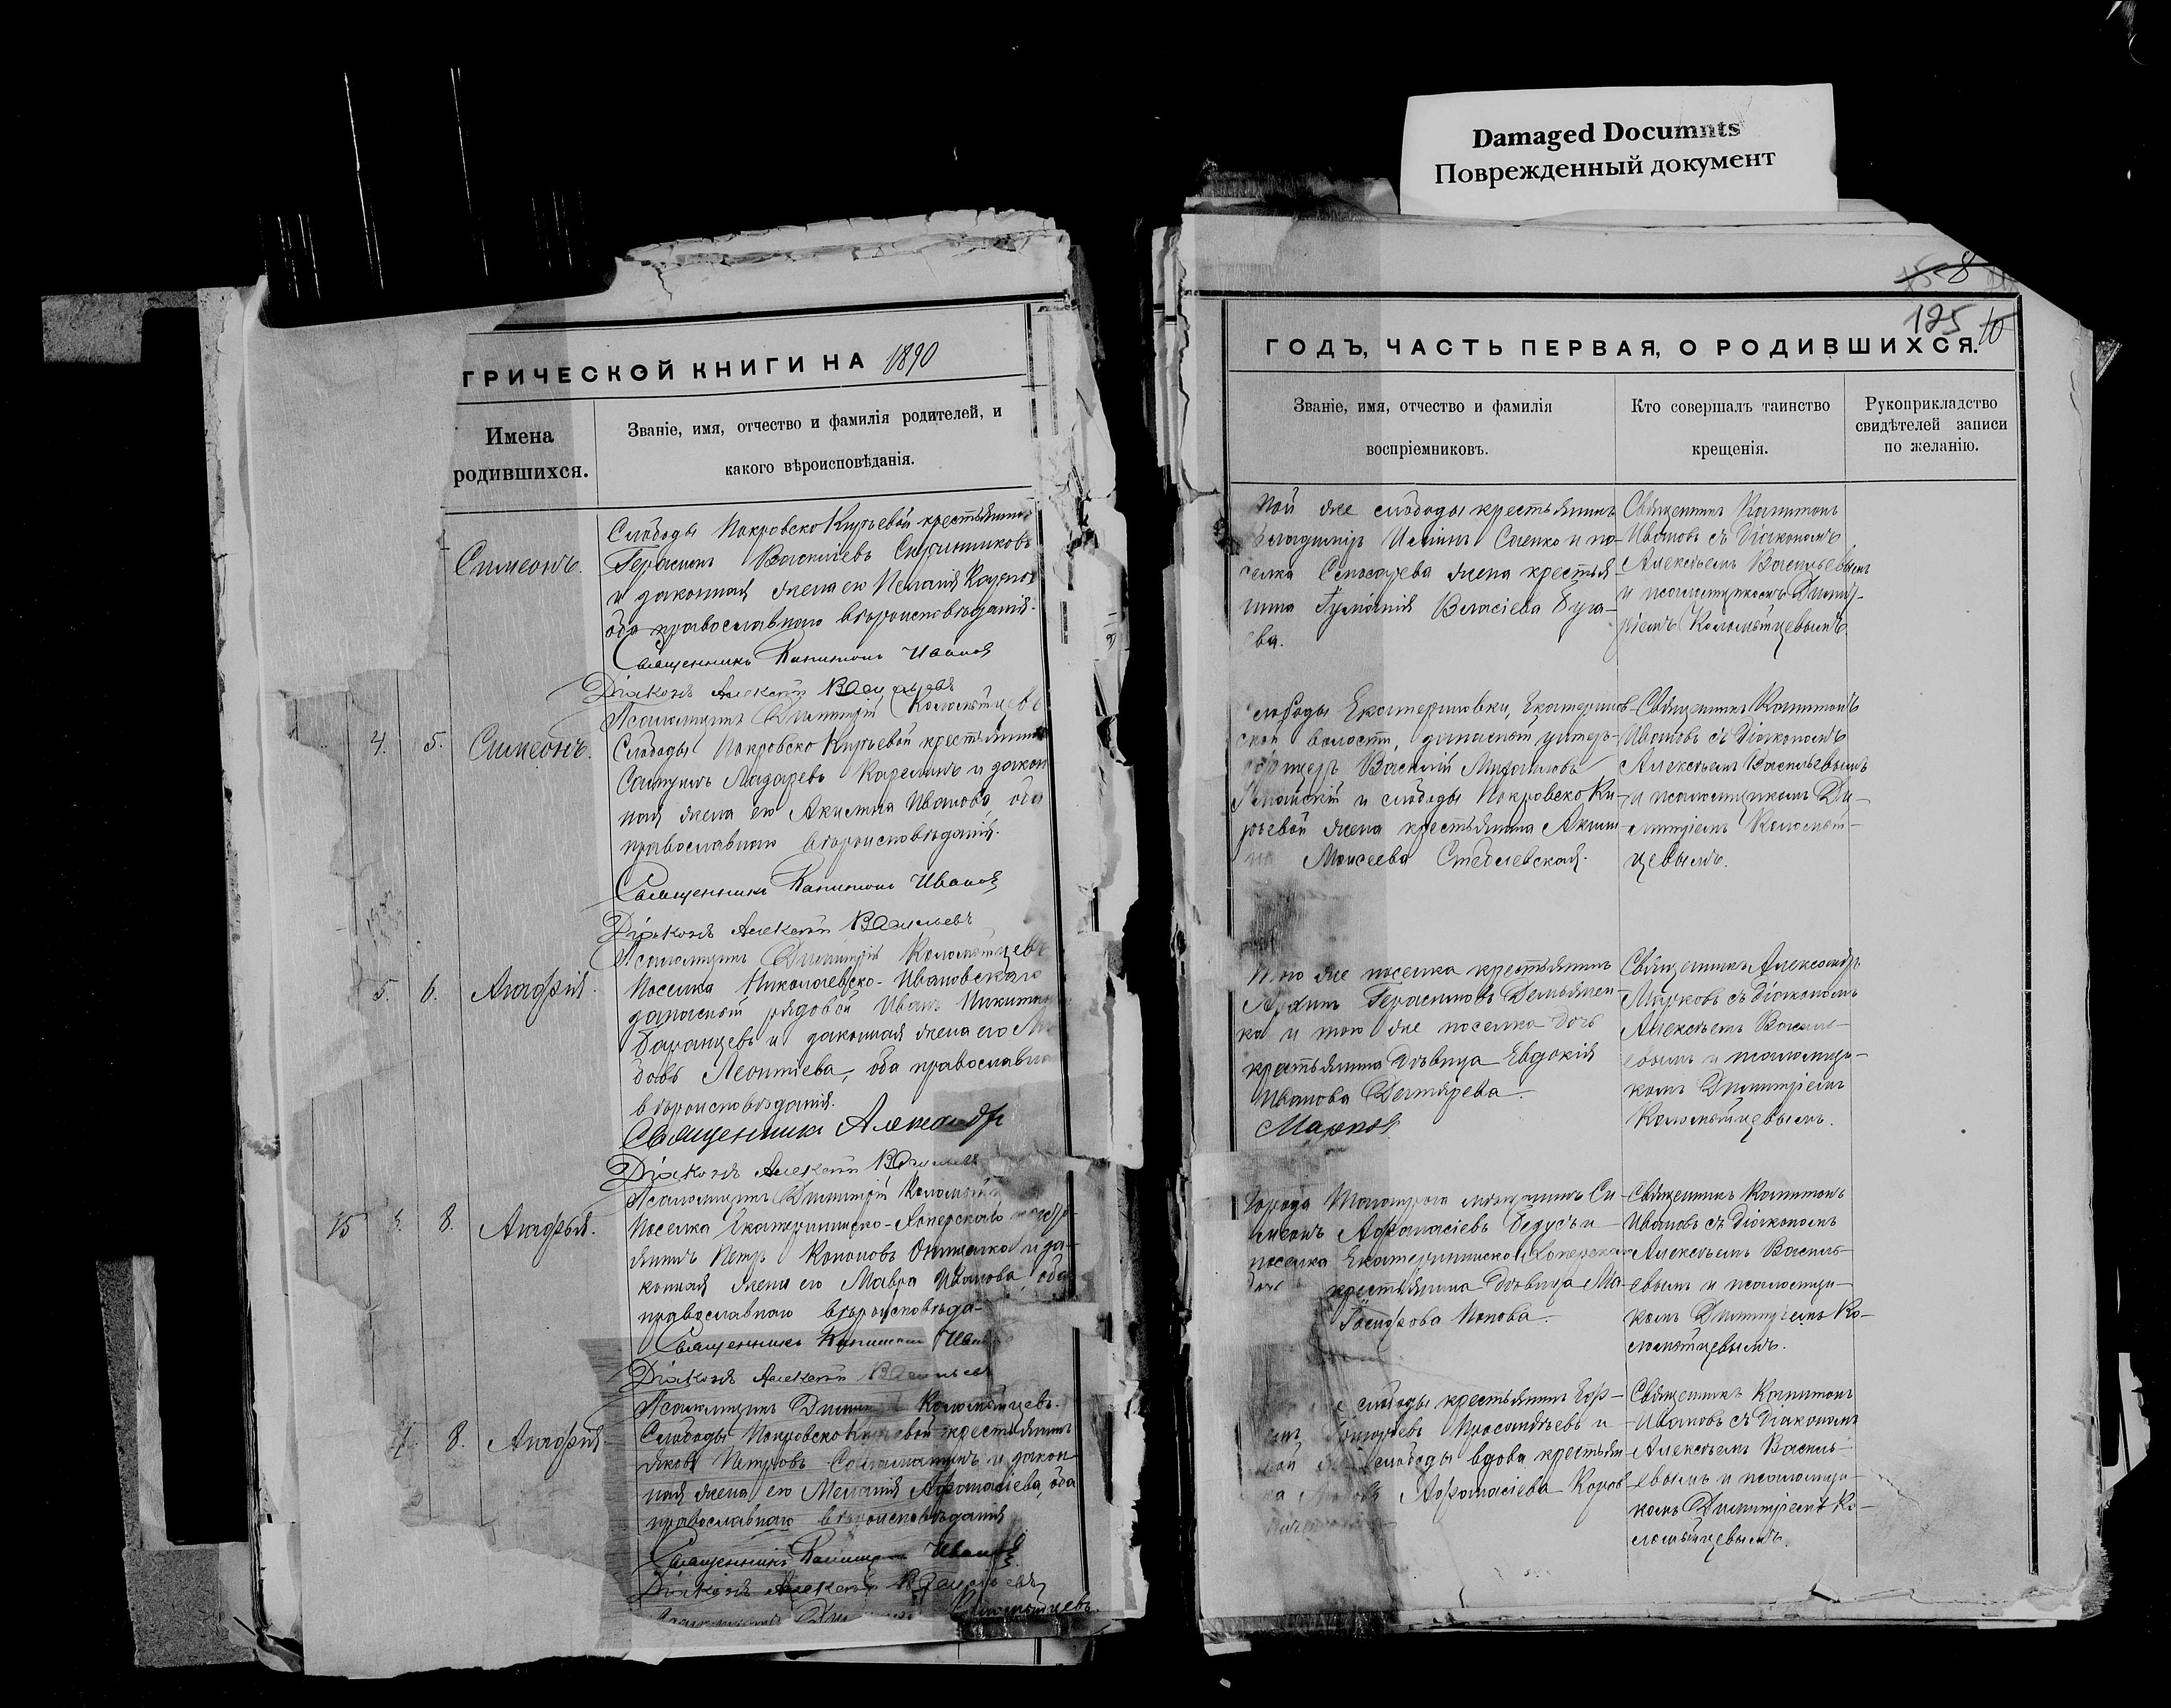 Damaged Documnts
Поврежденный документ
ГРИЧЕСКОЙ КНИГИ НА 1890
Имена
родившихся.
Званіе, имя, отчество и фамилія родителей, и
какого вѣроисповѣданія.
Симеонъ.
Слободы Покровско Кирѣевой крестьянинъ
Герасимъ Васильевъ
и законная жена его
оба православнаго вѣроисповѣданія.
Священникъ Капитонъ Ивановъ
Діаконъ Алексѣй Васильевъ
Псаломщикъ Димитрій Коломѣйцевъ
4. 5. Симеонъ.
Слободы Покровско Кирѣевой крестьянинъ
Лазаревъ Карелинъ и закон
ная жена его Акилина Иванова, оба
православнаго вѣроисповѣданія.
Священникъ Капитонъ Ивановъ
Діаконъ Алексѣй Васильевъ
Псаломщикъ Димитрій Коломѣйцевъ
5. 6. Агафія.
Поселка Николаевско-Ивановскаго
запасный рядовой Иванъ Никитинъ
Баранцевъ и законная жена его
Леонтіева, оба православнаго
вѣроисповѣданія.
Священникъ Александръ
Діаконъ Алексѣй Васильевъ
Псаломщикъ Димитрій
15 8. Агафья.
Поселка Екатерининско-Хоперскаго
Петръ Кононовъ и за-
конная жена его Мавра Иванова, оба
православнаго вѣроисповѣда-
Священникъ Капитонъ
Діаконъ Алексѣй Васильевъ
Псаломщикъ Коломѣйцевъ.
8. Агафія.
Слободы Покровско крестьянинъ
Яковъ Петровъ и закон
ная жена его Меланія Афанасіева, оба
православнаго вѣроисповѣданія
Священникъ Капитонъ Ивановъ
Діаконъ Алексѣй Васильевъ
Коломѣйцевъ.
8
125 10
ГОДЪ, ЧАСТЬ ПЕРВАЯ, О РОДИВШИХСЯ.
Званіе, имя, отчество и фамилія
воспріемниковъ.
Кто совершалъ таинство
крещенія.
Рукоприкладство
свидѣтелей записи
по желанію.
той же слободы крестьянинъ
Саенко и по-
селка жена крестья-
нина Власіева Буга-
ева.
Священникъ Капитонъ
Ивановъ съ Діакономъ
Алексѣемъ Васильевымъ
и псаломщикомъ Димит-
ріемъ Коломѣйцевымъ.
Слободы Екатериновки, Екатеринов-
ской волости, запасный унтеръ-
офицеръ Василій Михайловъ
и слободы Покровско Ки-
рѣевой жена крестьянина Акили-
на Моисеева Стеблевская.
Священникъ Капитонъ
Ивановъ съ Діакономъ
Алексѣемъ Васильевымъ
и псаломщикомъ Ди-
митріемъ Коломѣй-
цевымъ.
того же поселка крестьянинъ
Герасимовъ Демьянен-
ко и того же поселка дочь
крестьянина дѣвица Евдокія
Иванова Дегтярева.
Марковъ
Священникъ Александръ
Марковъ съ Діакономъ
Алексѣемъ Василь-
евымъ и псаломщи-
комъ Димитріемъ
Коломѣйцевымъ.
Города Таганрога мѣщанинъ Си-
меонъ Афанасіевъ и
поселка Екатерининско-Хоперскаго
крестьянина дѣвица Ма-
Іосифова Попова.
Священникъ Капитонъ
Ивановъ съ Діакономъ
Алексѣемъ Василь-
евымъ и псаломщи-
комъ Димитріемъ Ко-
ломѣйцевымъ.
слободы крестьянинъ Еф-
Григорьевъ и
слободы вдова крестьян
Афанасіева
Священникъ Капитонъ
Ивановъ съ Діакономъ
Алексѣемъ Василь-
евымъ и псаломщи-
комъ Димитріемъ Ко-
ломѣйцевымъ.